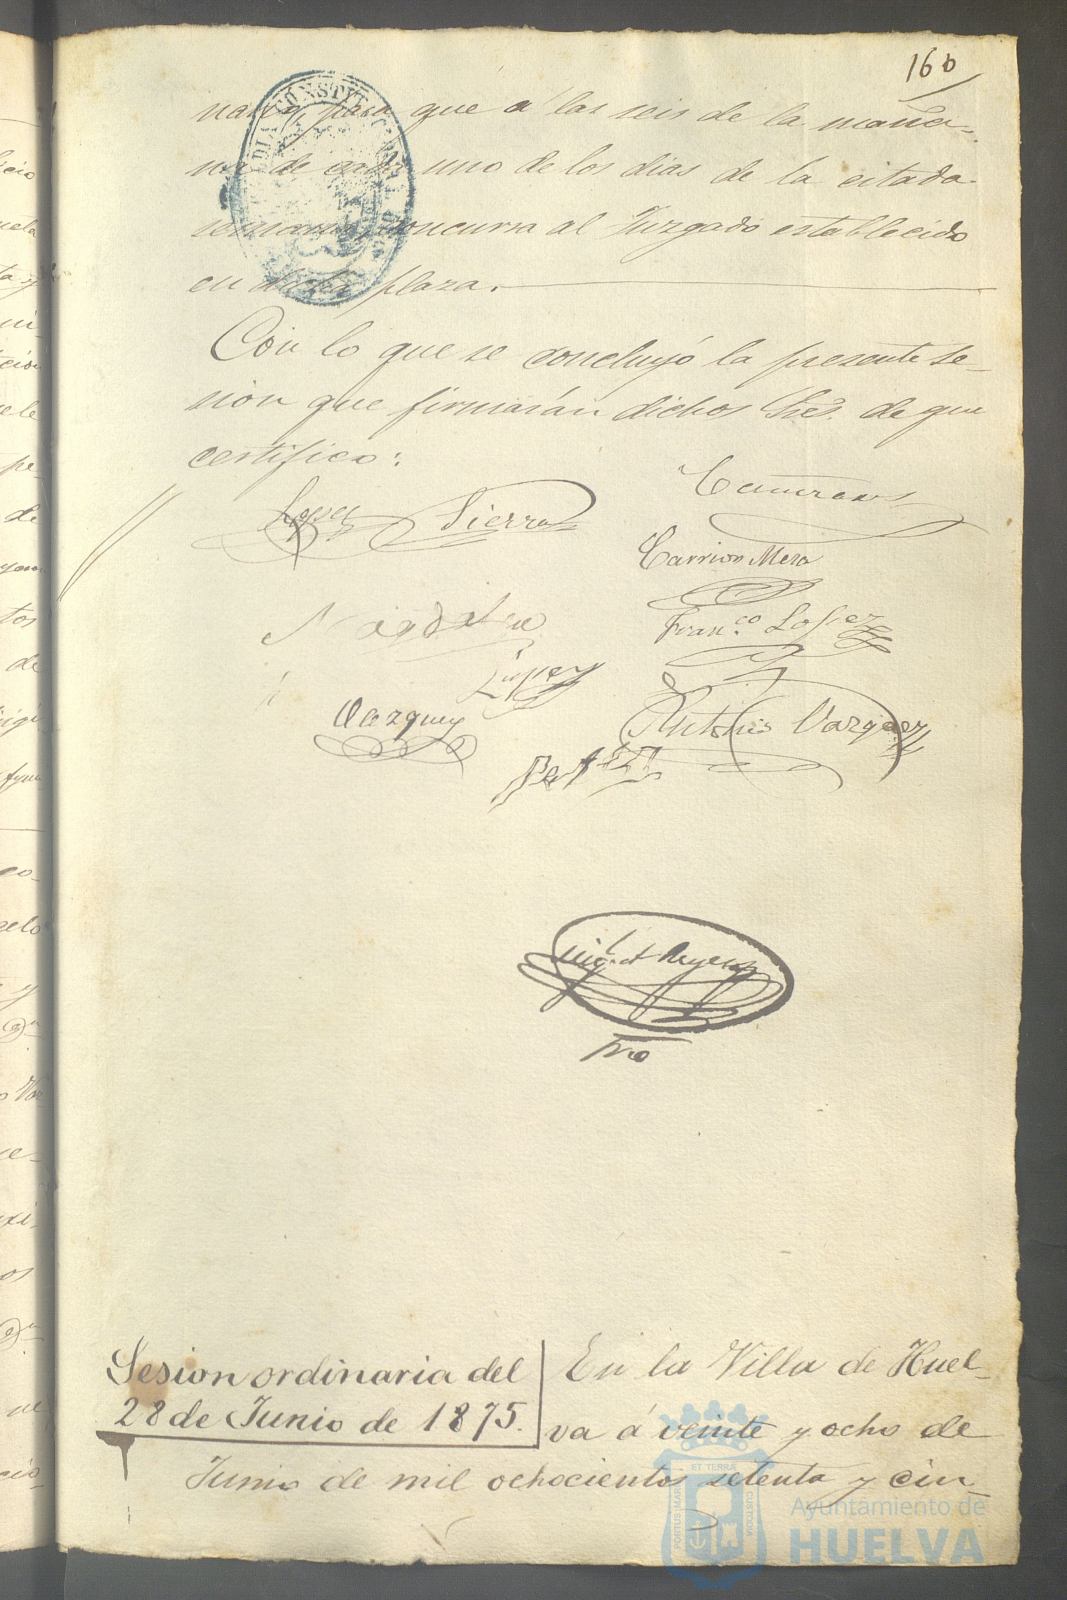 160
para que á las seis de la maña-
na de cada uno de los dias de la citada
semana, concurra al Juzgado establecido
en dicha plaza.
Con lo que se concluyó la presente se-
sion que firmarán dichos Sres. de que
certifico:
Lopez Sierra
Carrion Mesa
Franco Lopez
Lopez
Vazquez
Antonio Vazquez
Miguel Reyes
Srio
Sesion ordinaria del
28 de Junio de 1875.
En la Villa de Huel-
va á veinte y ocho de
Junio de mil ochocientos setenta y cin-
PORTUS MARIS ET TERRÆ CUSTODIA
Ayuntamiento de
HUELVA